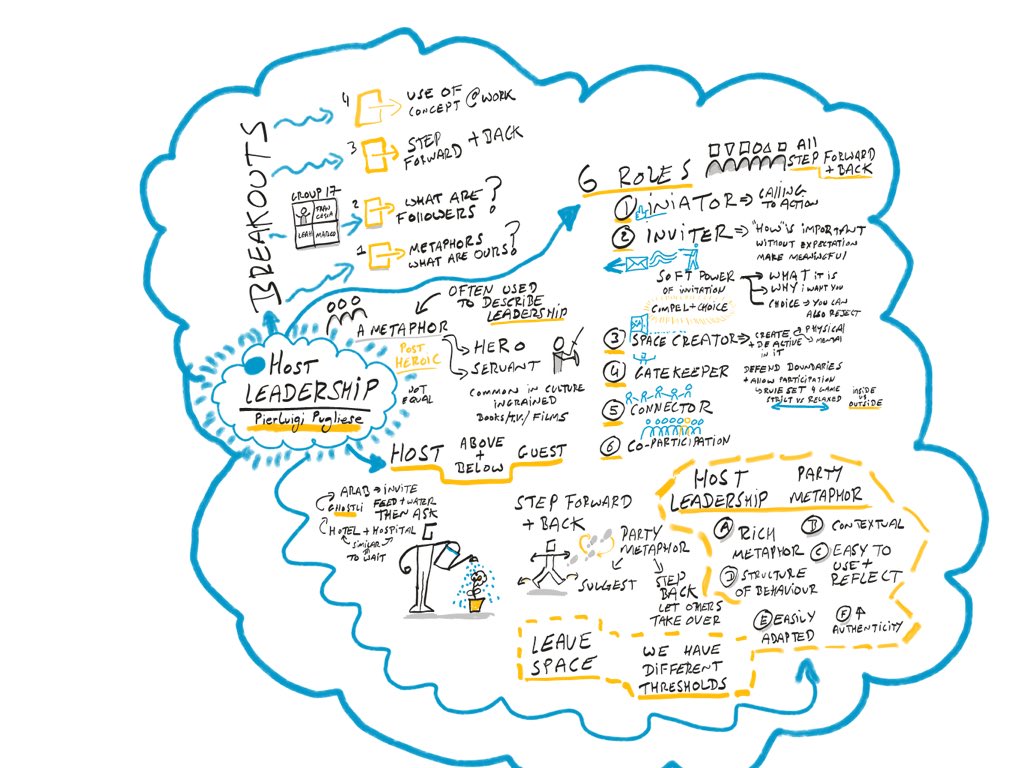 BREAKOUTS
4 USE OF
CONCEPT @ WORK
3 STEP
FORWARD + BACK
GROUP 17
FRAN
CESCA
LEAH
MARCO
2 WHAT ARE
FOLLOWERS?
1 METAPHORS
WHAT ARE OURS?
HOST
LEADERSHIP
PierLuigi Pugliese
OFTEN USED
TO DESCRIBE
LEADERSHIP
A METAPHOR
POST
HEROIC
HERO
SERVANT
NOT
EQUAL
COMMON IN CULTURE
INGRAINED
BOOKS/T.V./FILMS
HOST ABOVE
+
BELOW GUEST
6 ROLES
All
STEP FORWARD
+ BACK
1 INIATOR → CALLING
TO ACTION
2 INVITER → "HOW" IS IMPORTANT
WITHOUT EXPECTATION
MAKE MEANINGFUL
SOFT POWER
OF INVITATION
WHAT IT IS
WHY I WANT YOU
CHOICE → YOU CAN
ALSO REJECT
COMPEL + CHOICE
3 SPACE CREATOR → CREATE → PHYSICAL
→ MENTAL
+ BE ACTIVE
IN IT
4 GATEKEEPER
DEFEND BOUNDARIES
+ ALLOW PARTICIPATION
↳ RULE SET A GAME
STRICT VS RELAXED
INSIDE
VS
OUTSIDE
5 CONNECTOR
6 CO-PARTICIPATION
ARAB → INVITE
GHOSTLI FEED + WATER
THEN ASK
HOTEL + HOSPITAL
SIMILAR
TO WAIT
STEP FORWARD
+ BACK
PARTY
METAPHOR
SUGGEST
STEP
BACK
LET OTHERS
TAKE OVER
LEAVE
SPACE
WE HAVE
DIFFERENT
THRESHOLDS
HOST
LEADERSHIP
PARTY
METAPHOR
A RICH
METAPHOR
B CONTEXTUAL
C EASY TO
USE +
REFLECT
D STRUCTURE
OF BEHAVIOUR
E EASILY
ADAPTED
F ↑
AUTHENTICITY